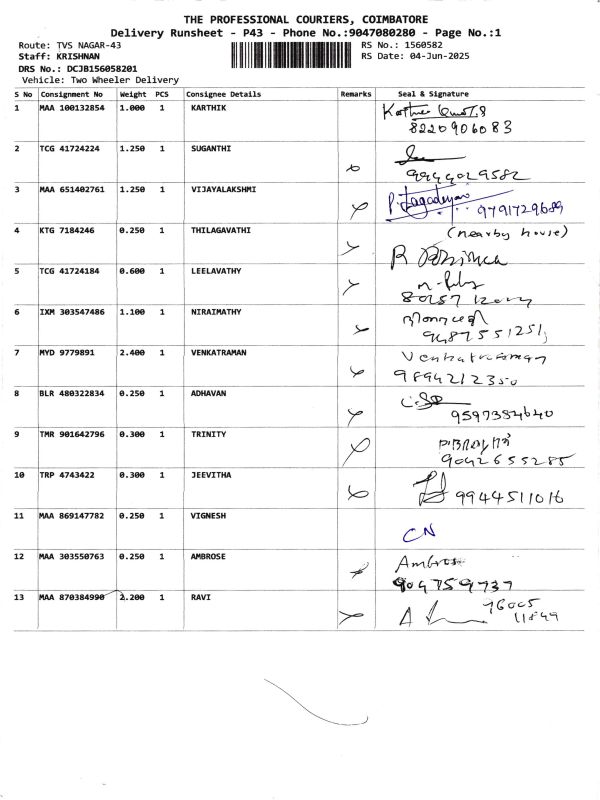 THE PROFESSIONAL COURIERS, COIMBATORE
Delivery Runsheet - P43 - Phone No.:9047080280 - Page No.:1
Route: TVS NAGAR-43
RS No.: 1560582
Staff: KRISHNAN
RS Date: 04-Jun-2025
DRS No.: DCJB156058201
Vehicle: Two Wheeler Delivery
S No Consignment No Weight PCS Consignee Details Remarks Seal & Signature
1 MAA 100132854 1.000 1 KARTHIK
8220906083
2 TCG 41724224 1.250 1 SUGANTHI
9944029582
3 MAA 651402761 1.250 1 VIJAYALAKSHMI
9791729689
4 KTG 7184246 0.250 1 THILAGAVATHI (nearby house)
R
5 TCG 41724184 0.600 1 LEELAVATHY
6 IXM 303547486 1.100 1 NIRAIMATHY
7 MYD 9779891 2.400 1 VENKATRAMAN Venkatraman
9894212350
8 BLR 480322834 0.250 1 ADHAVAN
9597384640
9 TMR 901642796 0.300 1 TRINITY
9042655285
10 TRP 4743422 0.300 1 JEEVITHA 9944511016
11 MAA 869147782 0.250 1 VIGNESH CN
12 MAA 303550763 0.250 1 AMBROSE Ambrose
9047759737
13 MAA 870384990 2.200 1 RAVI 76005
11849